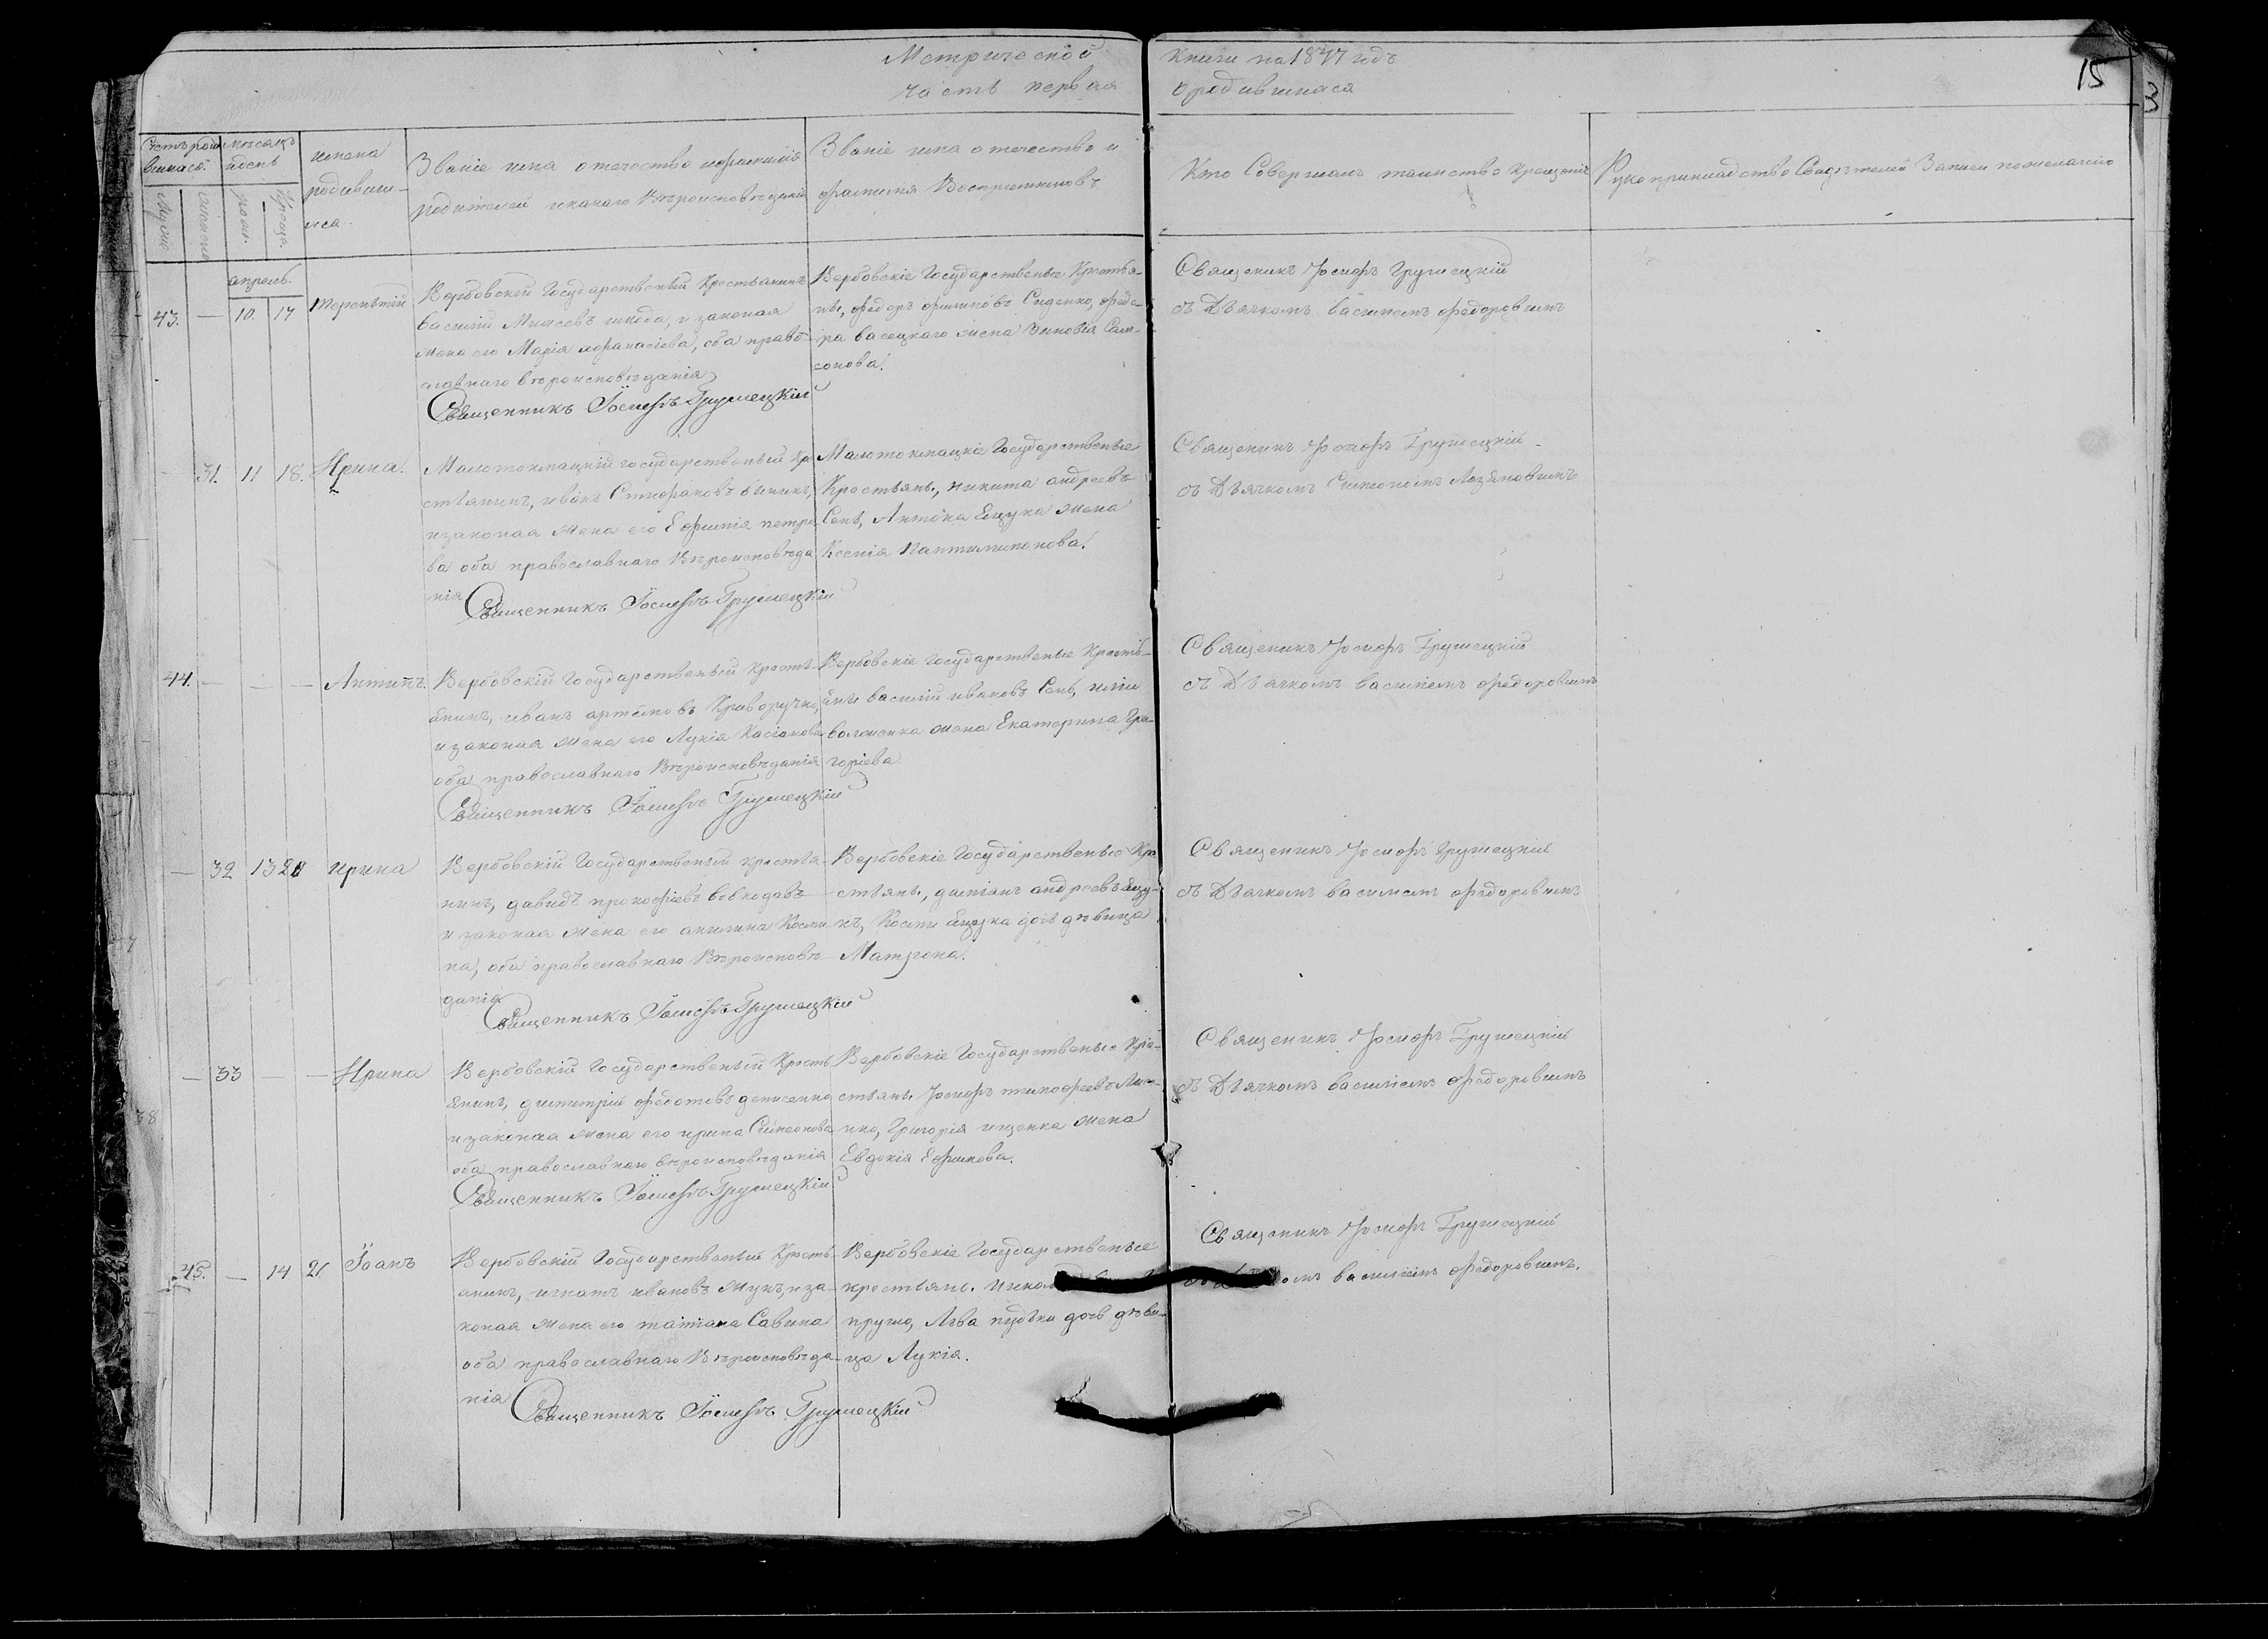 Метрической книги на 1847 годъ
часть первая о родившихся
15
3
Счетъ родившихся
мѣсяцъ и день
имена родившихся
Званіе имя отечество и фамилія
родителей и какаго Вѣроисповѣданія
Званіе имя отечество и
фамилія Воспріемниковъ
Кто Совершалъ таинство крещенія
Рукоприкладство Свидѣтелей Записи по желанію
апрель.
43. — 10. 17 терентій
Вербовскій Государственый Крестьянинъ
василій шкода, и законая
жена его Марія афанасіева, оба право-
славнаго вѣроисповѣданія
Священникъ Іосифъ Грушецкій
Вербовскіе Государственые Крестья-
не, федоръ филиповъ Сиденко, федо-
ра васецкаго жена Зиновія Сам-
сонова.
Священикъ Іосифъ Грушецкій
съ Дьячкомъ василіемъ федоровымъ
— 31. 11 18. Ирина.
Малотокмацкій государственый кре
стьянинъ, иванъ Стефановъ
и законая жена его Ефимія петро
ва оба православнаго Вѣроисповѣда
нія Священникъ Іосифъ Грушецкій
Малотокмацкіе Государственые
Крестьяне, никита андреевъ
Сень, Антона Ещука жена
Ксенія Пантилимонова.
Священикъ Іосифъ Грушецкій
съ Дьячкомъ Симеономъ
44. — — — Антипъ.
Вербовскій Государственый кресть-
янинъ, иванъ артемовъ Криворучко,
и законая жена его Лукія Касіанова
оба православнаго Вѣроисповѣданія
Священникъ Іосифъ Грушецкій
Вербовскіе Государственые Кресть-
яне василій ивановъ Сень, иліи
жена Екатерина Гри-
горіева
Священикъ Іосифъ Грушецкій
съ Дьячкомъ василіемъ федоровымъ
— 32 13 20 ирина
Вербовскій Государственый крестья-
нинъ, давидъ прокофіевъ вовкодавъ
и законая жена его акилина Кости
на, оба православнаго Вѣроисповѣ-
данія
Священникъ Іосифъ Грушецкій
Вербовскіе Государственые Кре
стьяне, даміанъ андреевъ Ящу-
къ, Кости Ящука дочь дѣвица
Матрона.
Священикъ Іосифъ Грушецкій
съ Дьячкомъ василіемъ федоровымъ
— 33 — — Ирина
Вербовскій Государственый Кресть
янинъ, димитрій федотовъ денисенко
и законая жена его ирина Симеонова
оба православнаго вѣроисповѣданія
Священникъ Іосифъ Грушецкій
Вербовскіе Государственые Кре-
стьяне Іосифъ тимофеевъ
Григорія ищенка жена
Евдокія Ефимова.
Священикъ Іосифъ Грушецкій
съ Дьячкомъ василіемъ федоровымъ
45. — 14 21 Іоанъ
Вербовскій Государственый Кресть
янинъ, игнатъ ивановъ и за-
коная жена его татіана Савина
оба православнаго Вѣроисповѣда-
нія Священникъ Іосифъ Грушецкій
Вербовскіе Государственые
крестьяне
Лева дочь дѣви-
ца Лукія.
Священикъ Іосифъ Грушецкій
василіемъ федоровымъ.